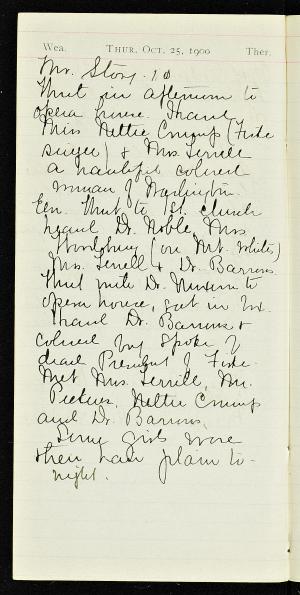 Wea. THUR. OCT. 25, 1900 Ther.
Mr. Story. 10
Went in afternoon to
opera house. Heard
Miss Nettie Crump (Fisk
singer) & Mrs Terrell
a beautiful colored
woman of Washington.
Eve. Went to 1st. church
heard Dr. Noble, Mrs
Woodbury (on Mt. Whites)
Mrs. Terrell & Dr. Barrows
Went with Dr. to
opera house, sat in box.
Heard Dr. Barrows &
colored boy spoke of
dead President of Fisk.
Met Mrs. Terrell, Mr.
Nettie Crump
and Dr. Barrows.
Some girls wore
their hair plain to-
night.